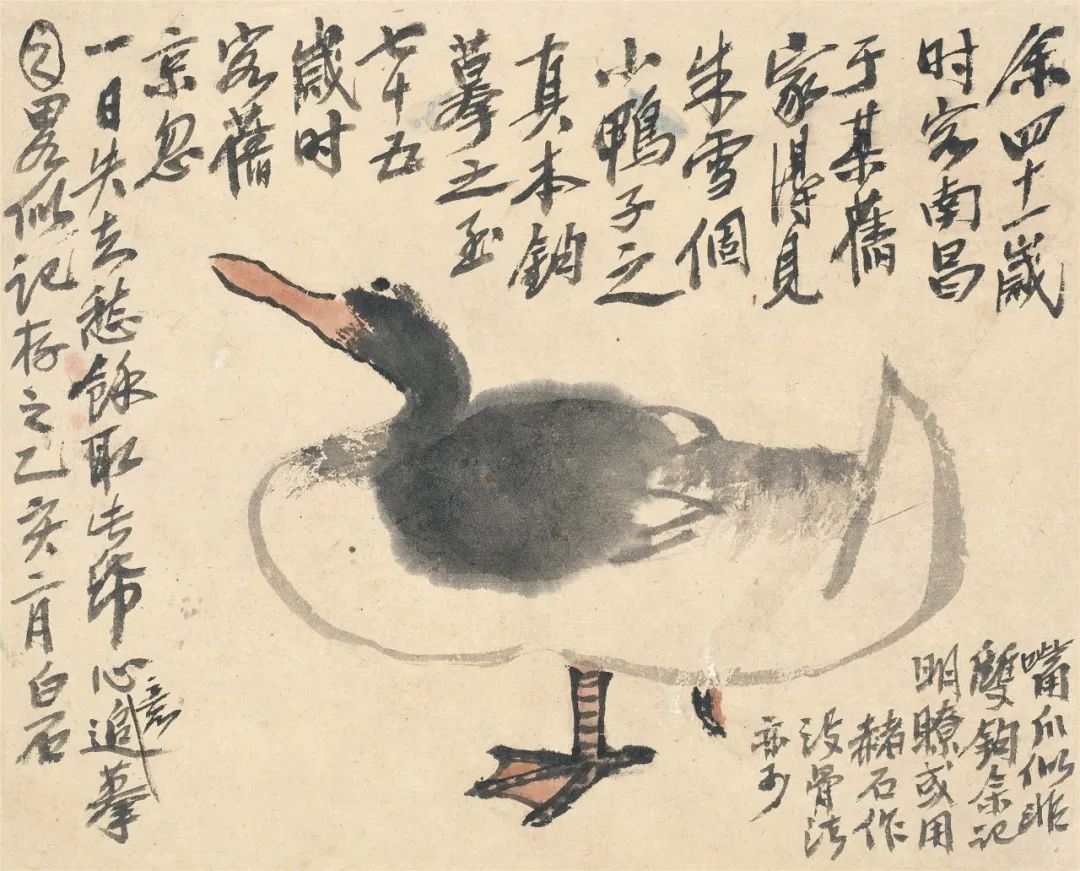 余四十一歲
时客南昌
于某舊
家得見
朱雪個
小鴨子之
真本鈎
摹之至
七十五
歲时
客舊
京忽
一日失去愁餘取此帋心意追摹
之畧似记存之乙亥二月白石
嘴爪似非
雙鈎余记
明瞭或用
赭石作
没骨法
亦可